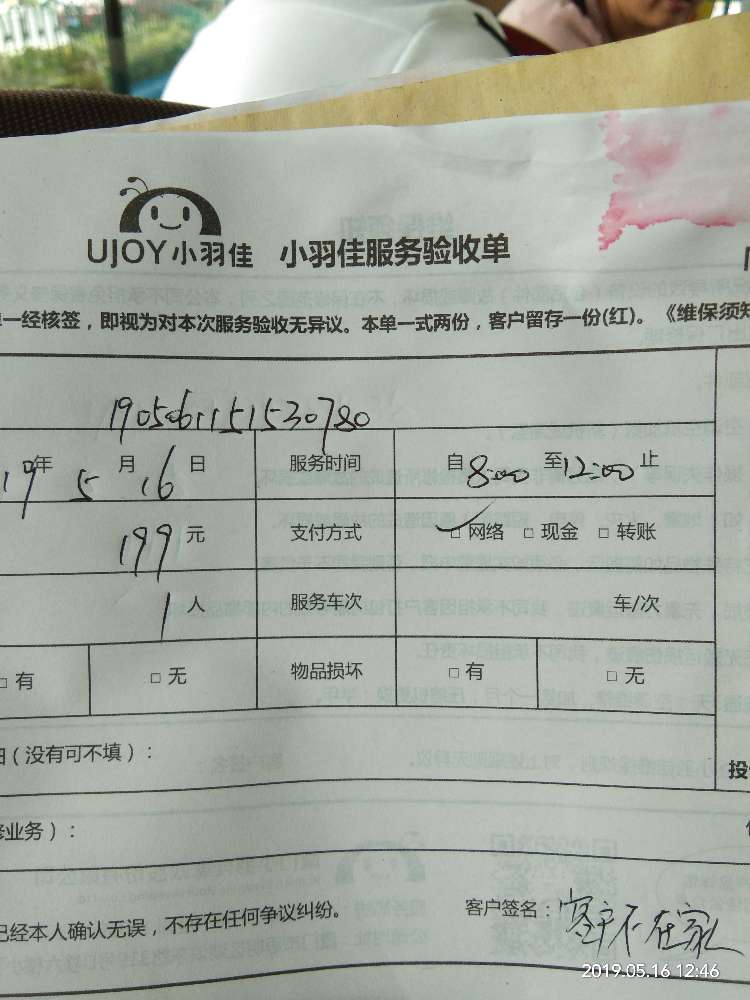 UJOY小羽佳 小羽佳服务验收单
一经核签，即视为对本次服务验收无异议。本单一式两份，客户留存一份(红)。《维保须知
1905061151530780
19年 5月 16日 服务时间 自8:00至12:00止
199元 支付方式 ✓□ 网络 □ 现金 □ 转账
1人 服务车次 车/次
□ 有 □ 无 物品损坏 □ 有 □ 无
(没有可不填)：
业务)：
已经本人确认无误，不存在任何争议纠纷。 客户签名：客户不在家
2019.05.16 12:46